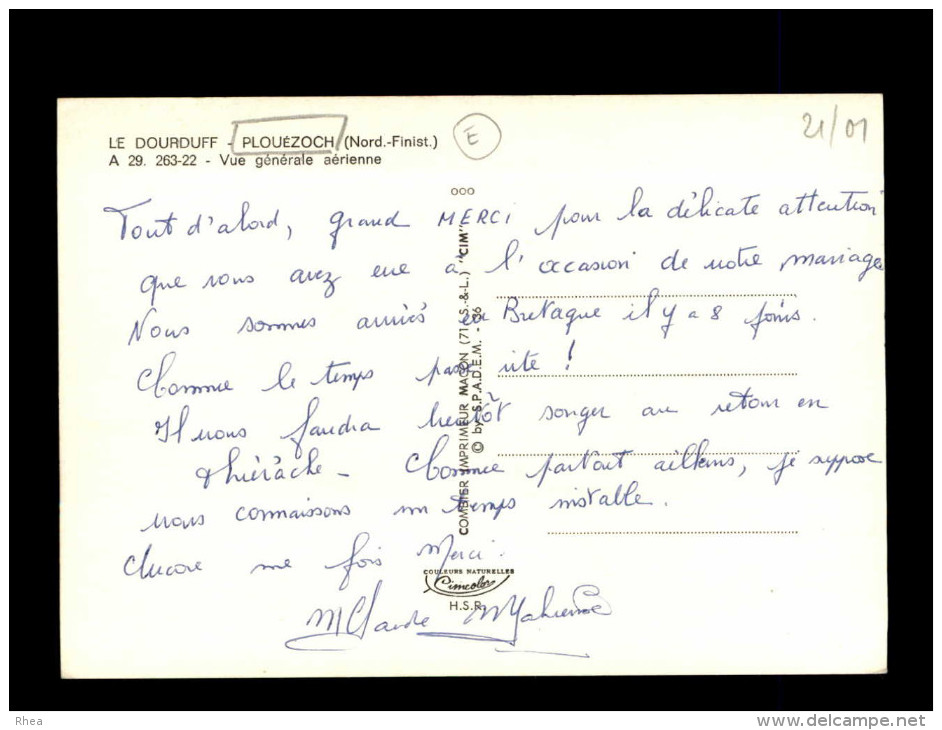 LE DOURDUFF - PLOUÉZOCH (Nord.-Finist.)
A 29. 263-22 - Vue générale aérienne
E
21/01
000
Tout d'abord, grand MERCI pour la délicate attention
que vous avez eue à l'occasion de notre mariage
Nous sommes arrivés en Bretagne il y a 8 jours.
Comme le temps passe vite !
Il nous faudra bientôt songer au retour en
Thiérache - Comme partout ailleurs, je suppose
nous connaissons un temps instable.
Encore une fois Merci.
M Claude
COMBIER IMPRIMEUR MACON (71 - S.-&-L.) "CIM"
© by S.P.A.D.E.M. - 86
COULEURS NATURELLES
Cimcolor
H.S.R.
Rhea
www.delcampe.net